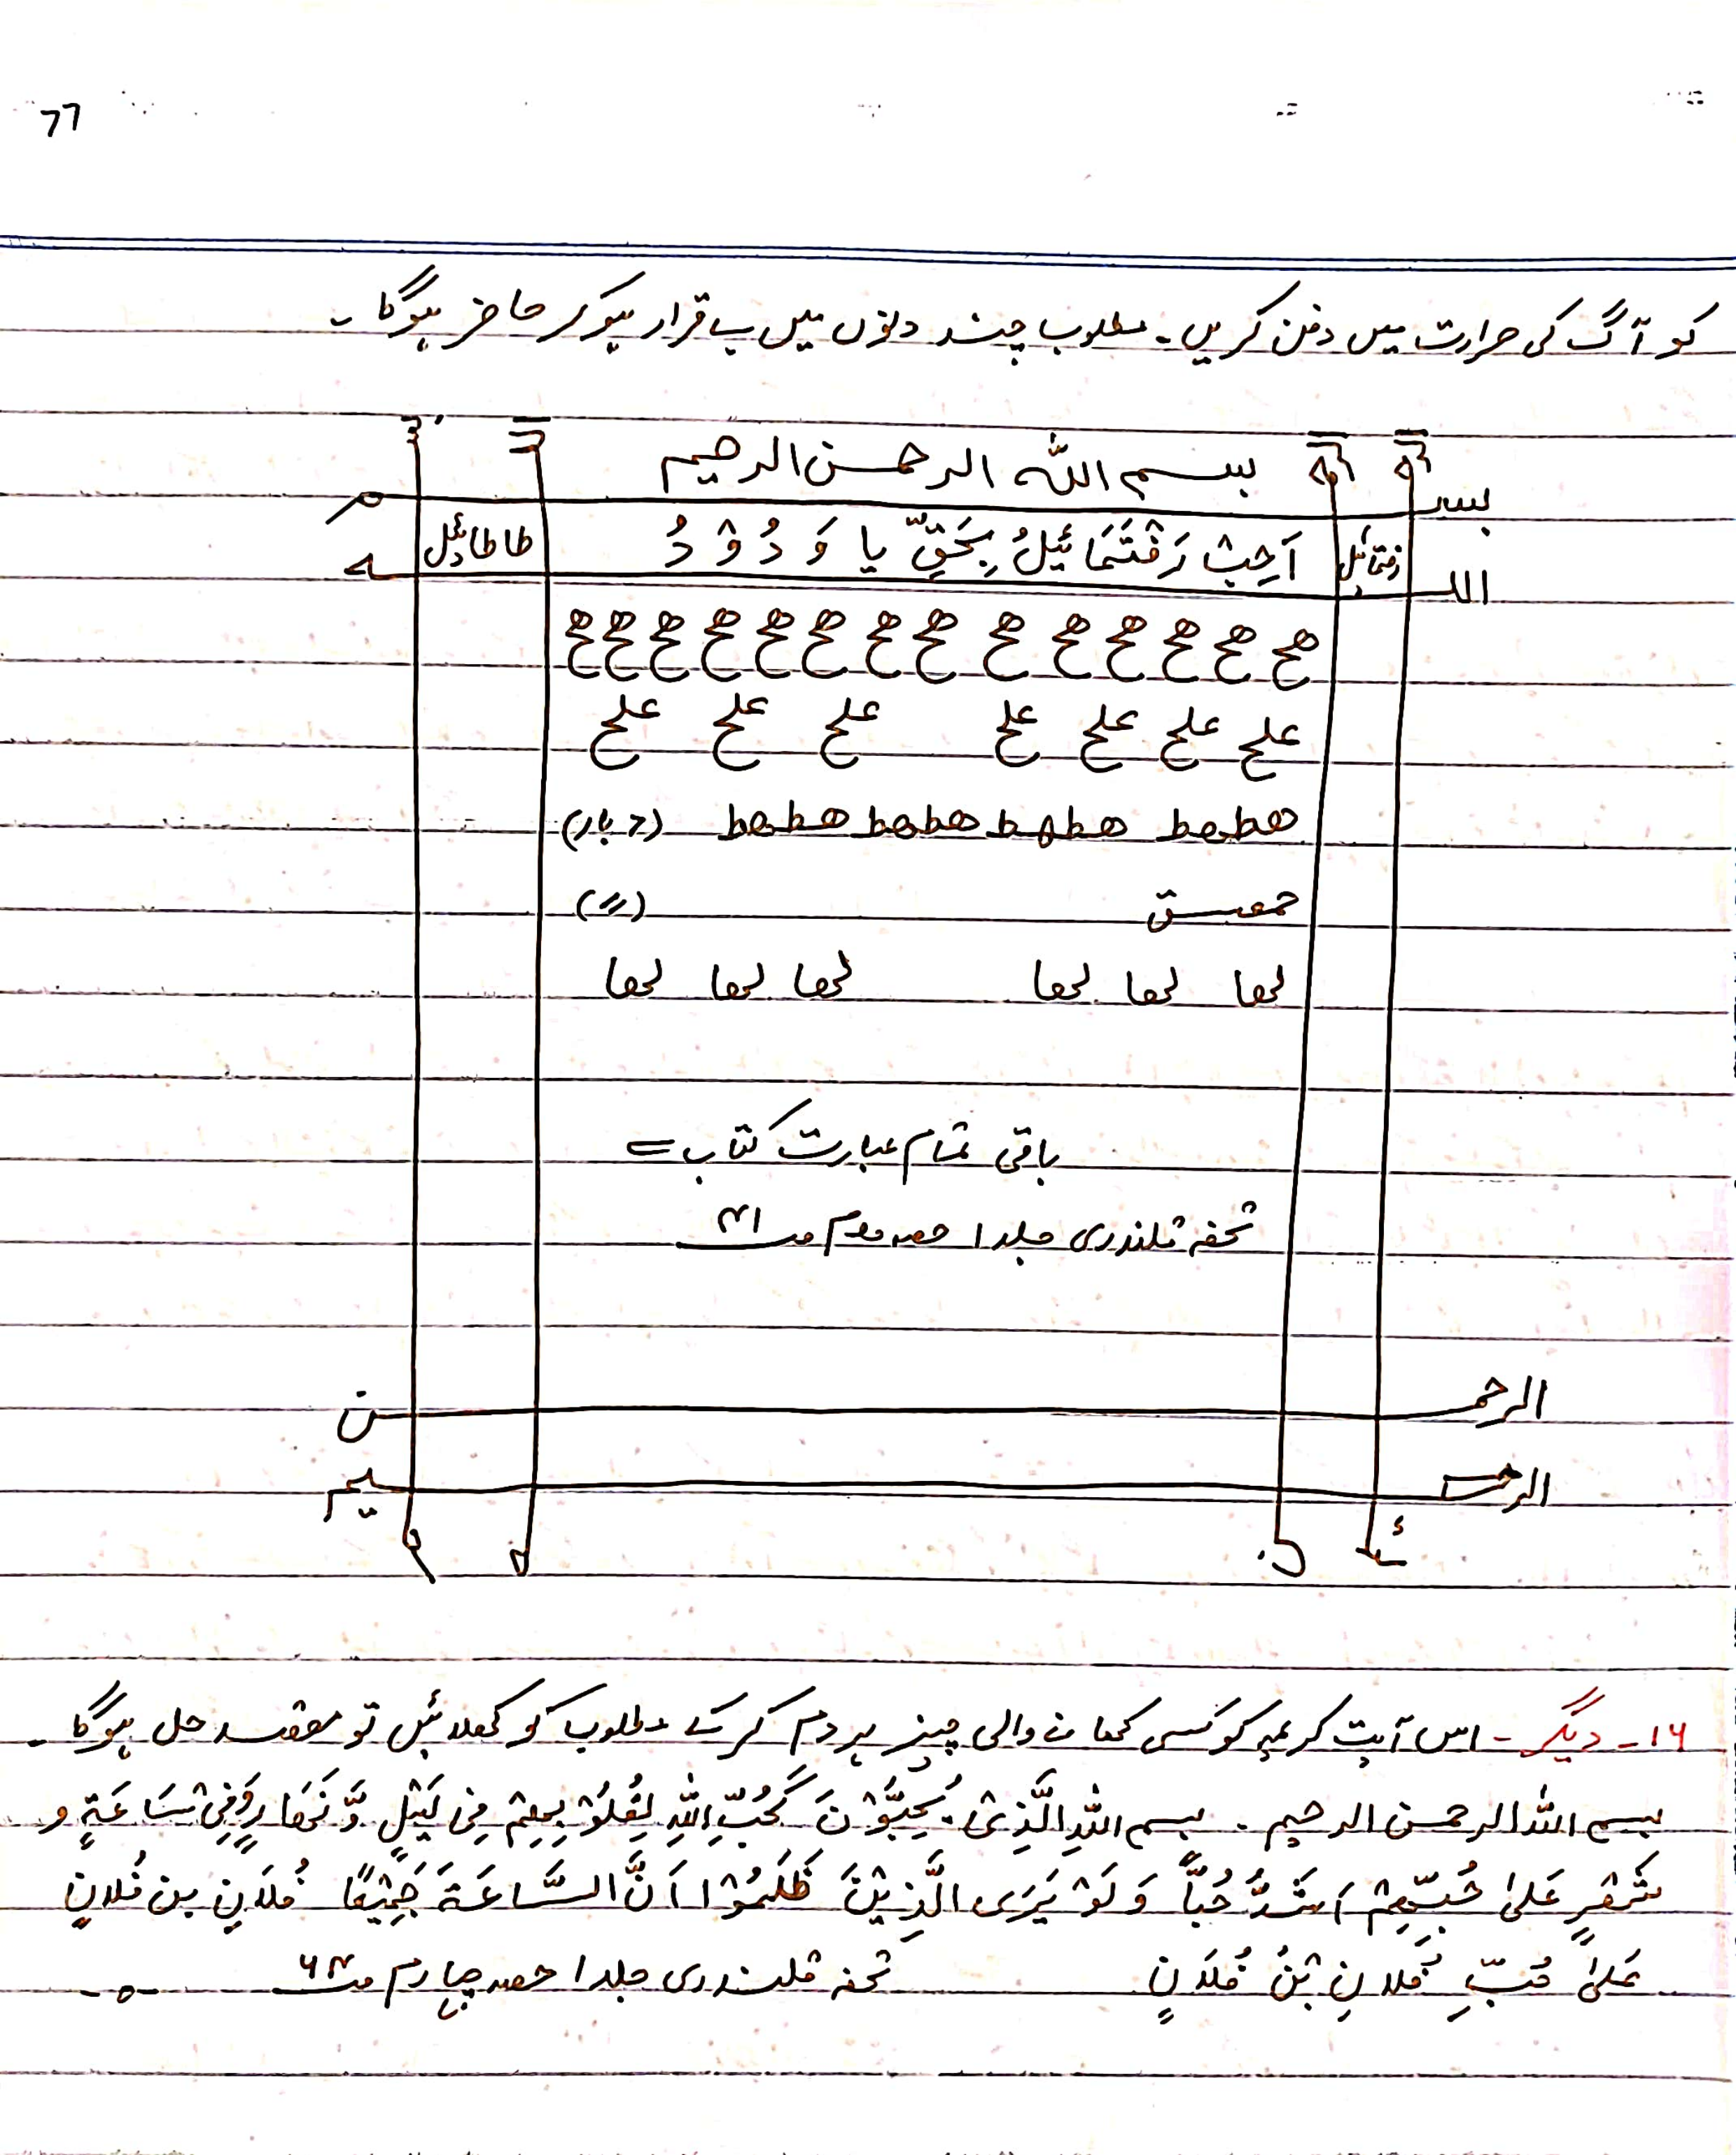 77
کو آگ کی حرارت میں دفن کریں۔ مطلوب چند دنوں میں بے قرار ہوکر حاضر ہوگا۔
بسم اللہ الرحمن الرحیم
بســـم
طاطائیل اَجِبْ رَفْتَمَائِیْلُ بِحَقِّ یا وَ دُ وْ دُ رفتمائیل
اللـــه
ھح ھح ھح ھح ھح ھح ھح ھح ھح ھح ھح ھح ھح ھح
علح علح علح علح علح علح علح
ھطھط ھطھط ھطھط ھطھط (۲ بار)
حمعسق (〃)
لھا لھا لھا لھا لھا لھا
باقی تمام عبارت کتاب =
تحفہ قلندری جلد ۱ حصہ دوم صـ ۴۱
الرحمـــن
الرحـــیم
۱۶۔ دیگر۔ اس آیت کریمہ کو کسی کھانے والی چیز پر دم کر کے مطلوب کو کھلائیں تو مقصد حل ہوگا۔
بسم اللہ الرحمن الرحیم۔ بسم اللہِ الَّذِیْ یُحِبُّوْنَ کَحُبِّ اللہِ لِقُلُوْبِھِمْ فِی لَیْلٍ وَّ نَھَارٍ وَّفِیْ سَاعَۃٍ و
شَھْرٍ عَلیٰ حُبِّھِمْ اَشَدُّ حُبًّا وَ لَوْ یَرَی الَّذِیْنَ ظَلَمُوْا اَنَّ السَّاعَۃَ جَمِیْعًا فُلَانِ بن فُلانٍ
عَلیٰ حُبِّ فُلانِ بْنُ فُلَانٍ تحفہ قلندری جلد ۱ حصہ چہارم صـ ۶۴